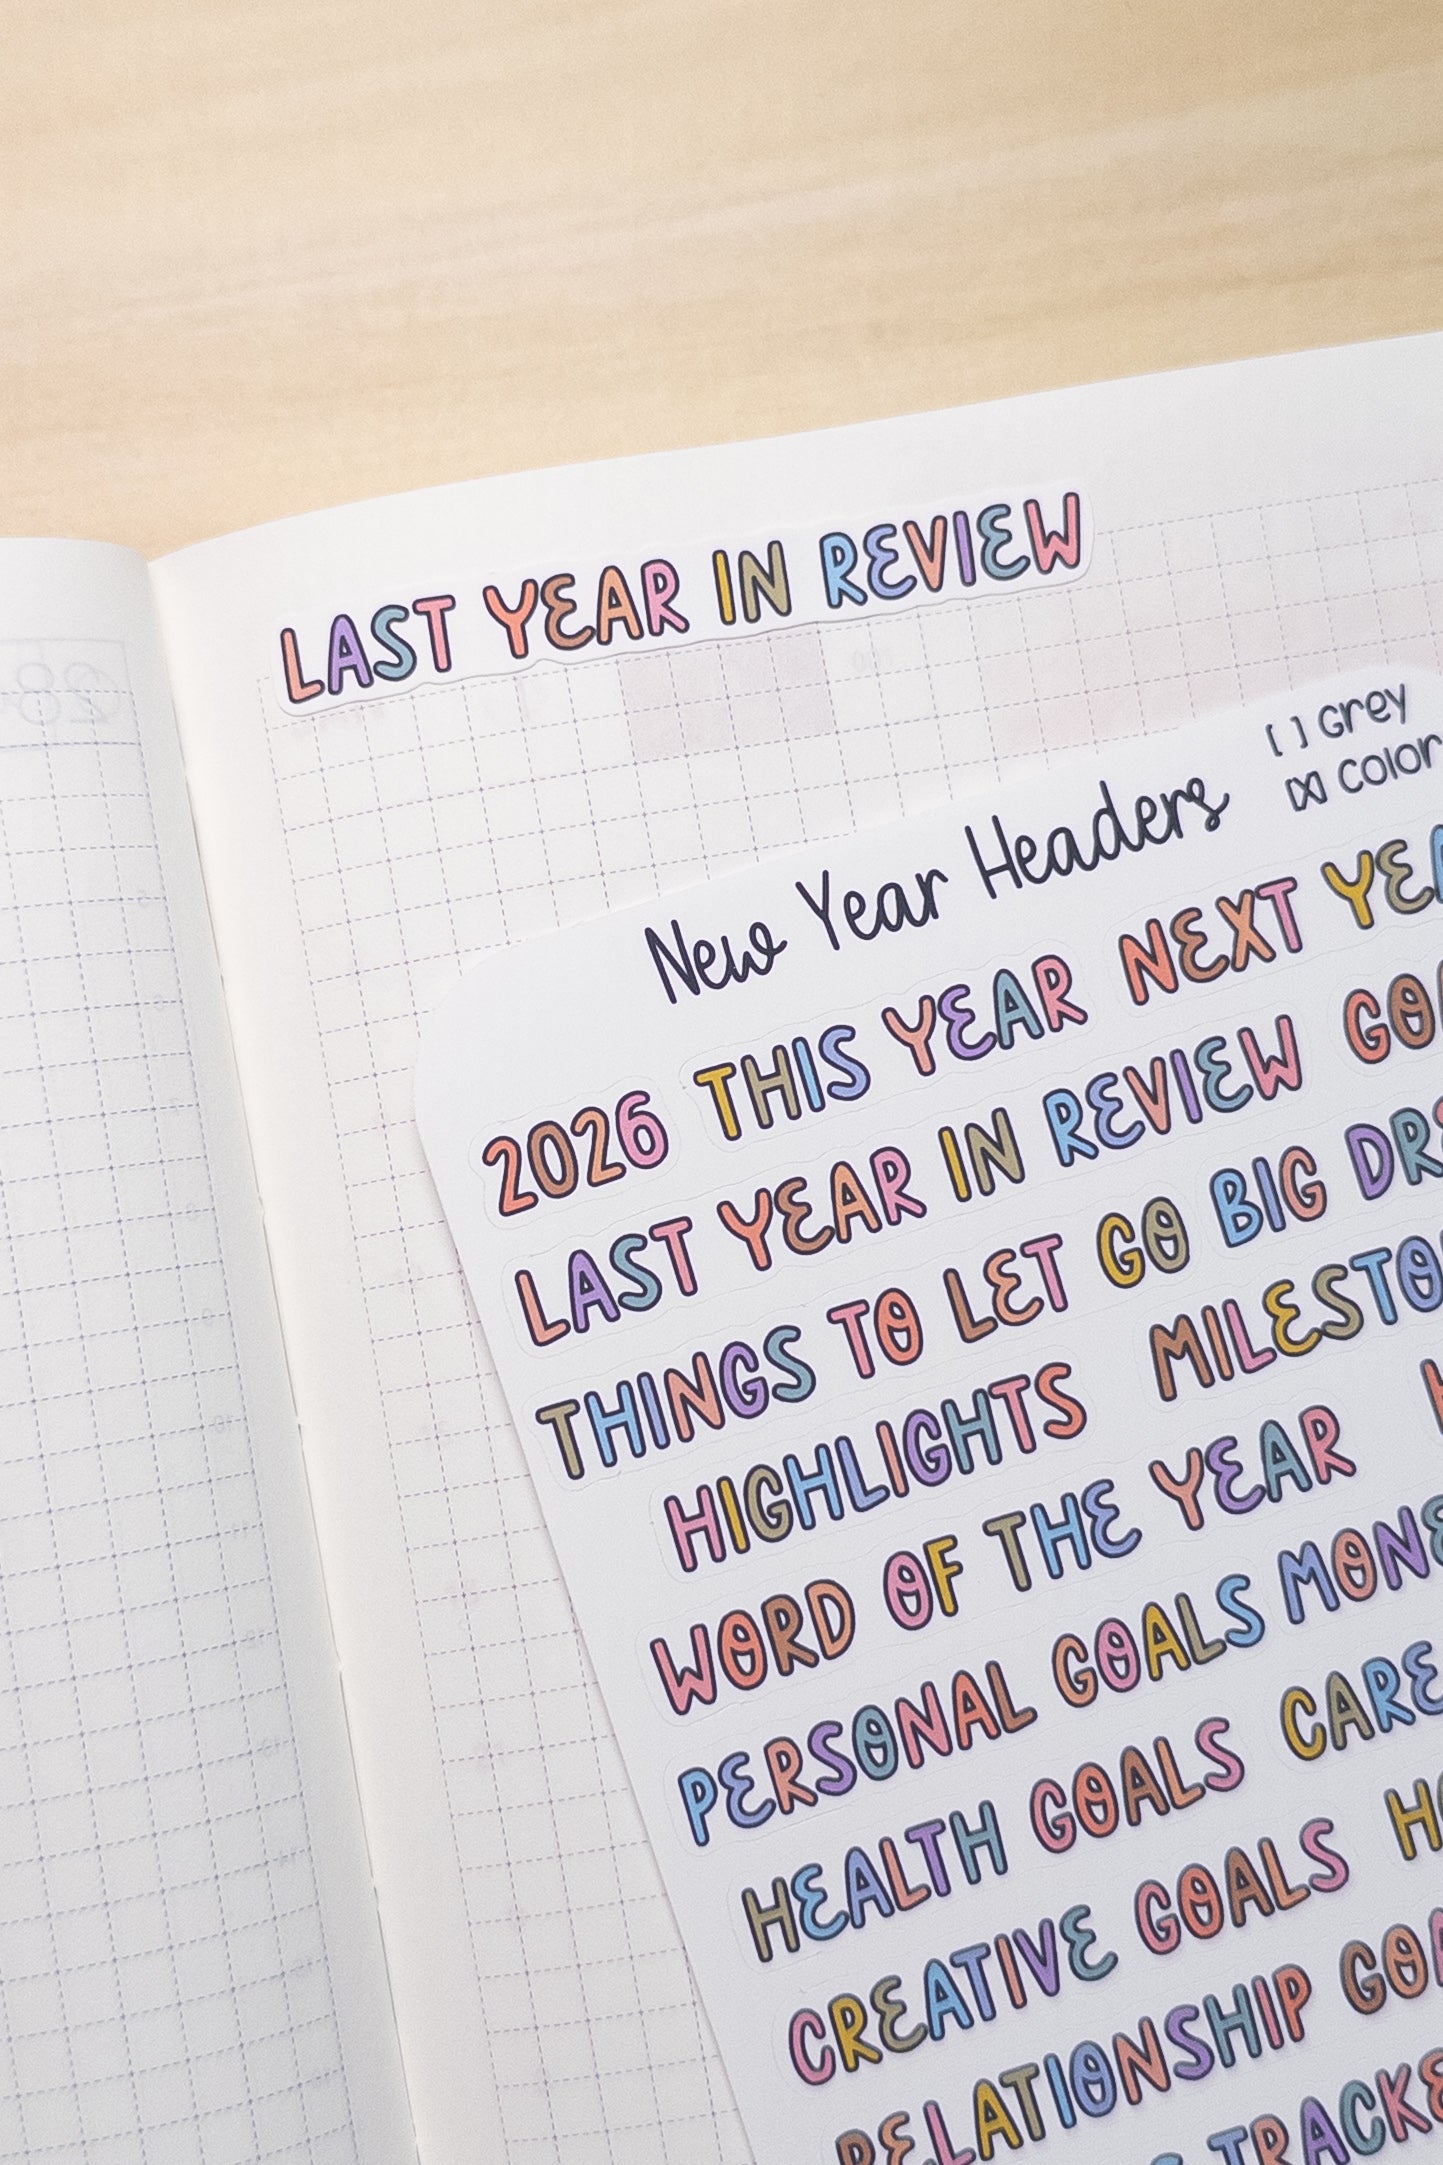 LAST YEAR IN REVIEW
New Year Headers
[ ] Grey
[X] Color
2026 THIS YEAR NEXT
LAST YEAR IN REVIEW
THINGS TO LET GO BIG
HIGHLIGHTS
WORD OF THE YEAR
PERSONAL GOALS
HEALTH GOALS
CREATIVE GOALS
RELATIONSHIP
28